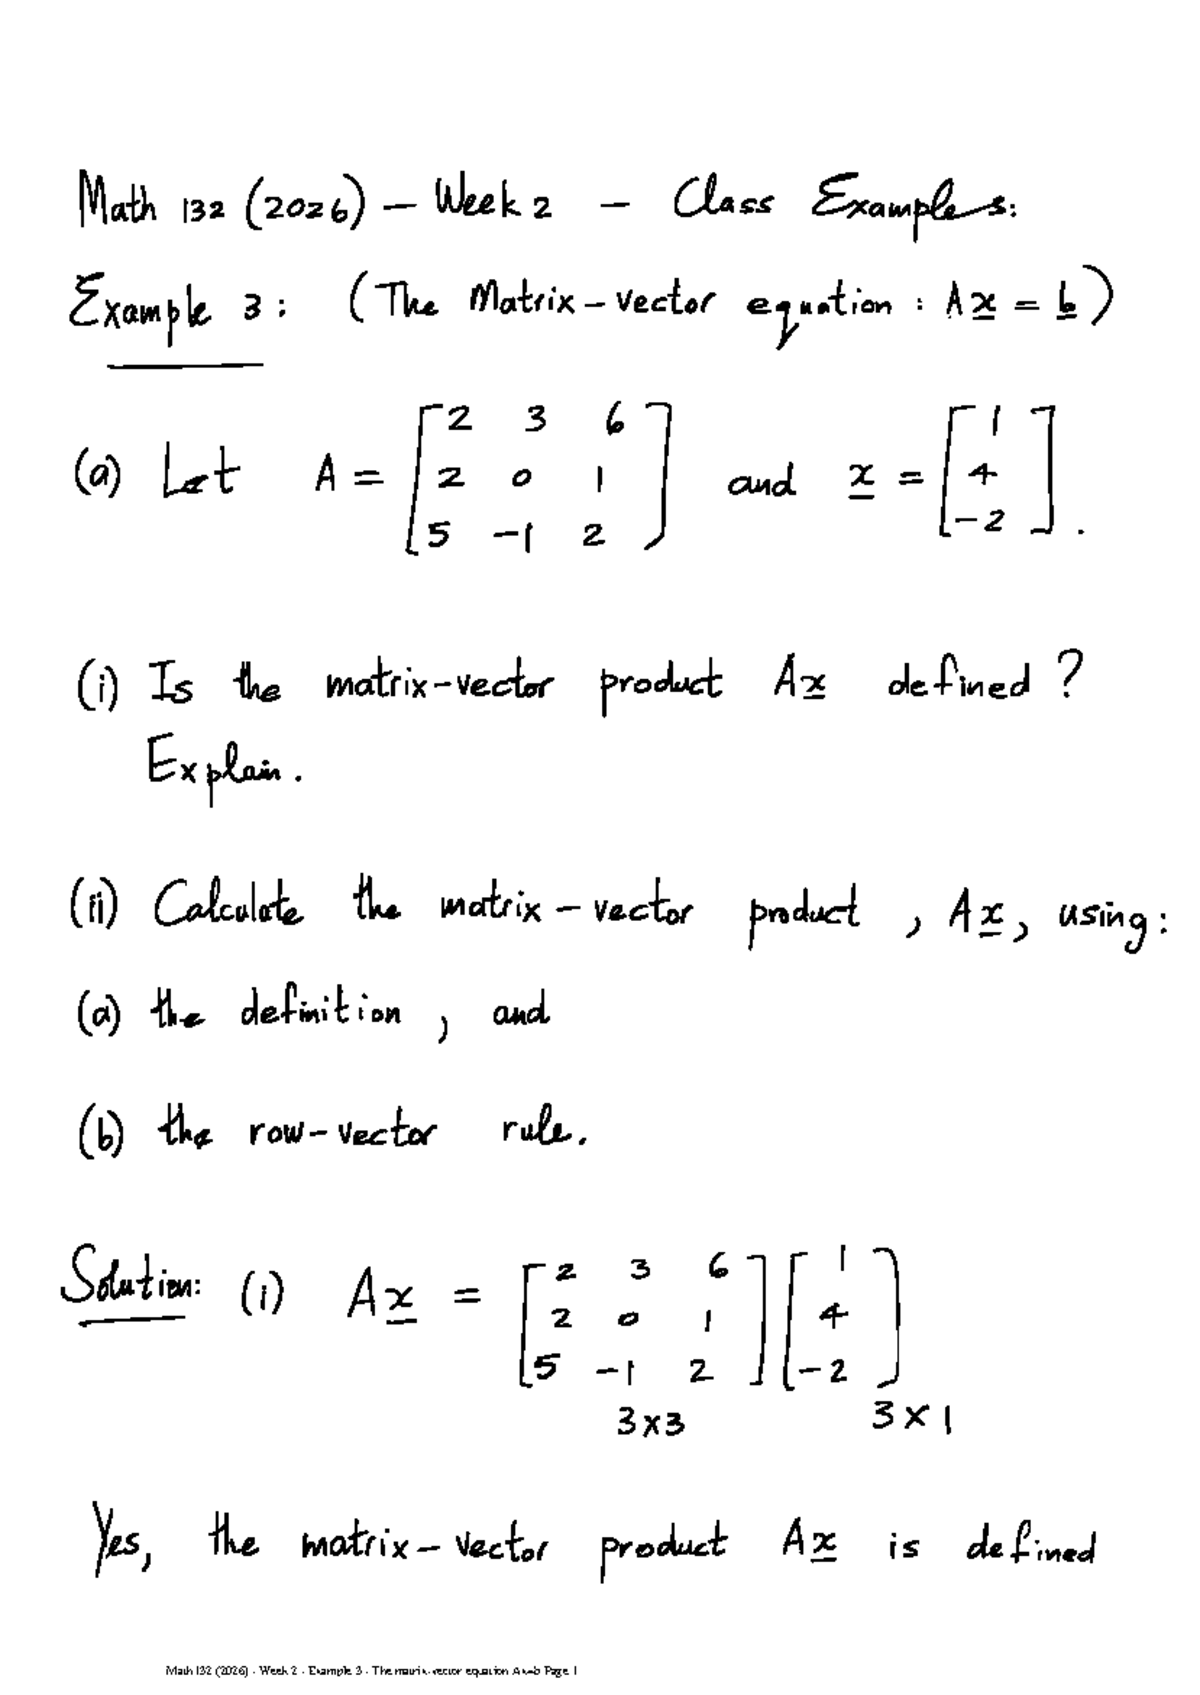 Math 132 (2026) – Week 2 – Class Examples:
Example 3: (The Matrix-vector equation: Ax = b)
(a) Let A = [2 3 6; 2 0 1; 5 -1 2] and x = [1; 4; -2].
(i) Is the matrix-vector product Ax defined?
Explain.
(ii) Calculate the matrix-vector product, Ax, using:
(a) the definition, and
(b) the row-vector rule.
Solution: (i) Ax = [2 3 6; 2 0 1; 5 -1 2] [1; 4; -2]
3×3 3×1
Yes, the matrix-vector product Ax is defined
Math 132 (2026) - Week 2 - Example 3 - The matrix-vector equation Ax=b Page 1